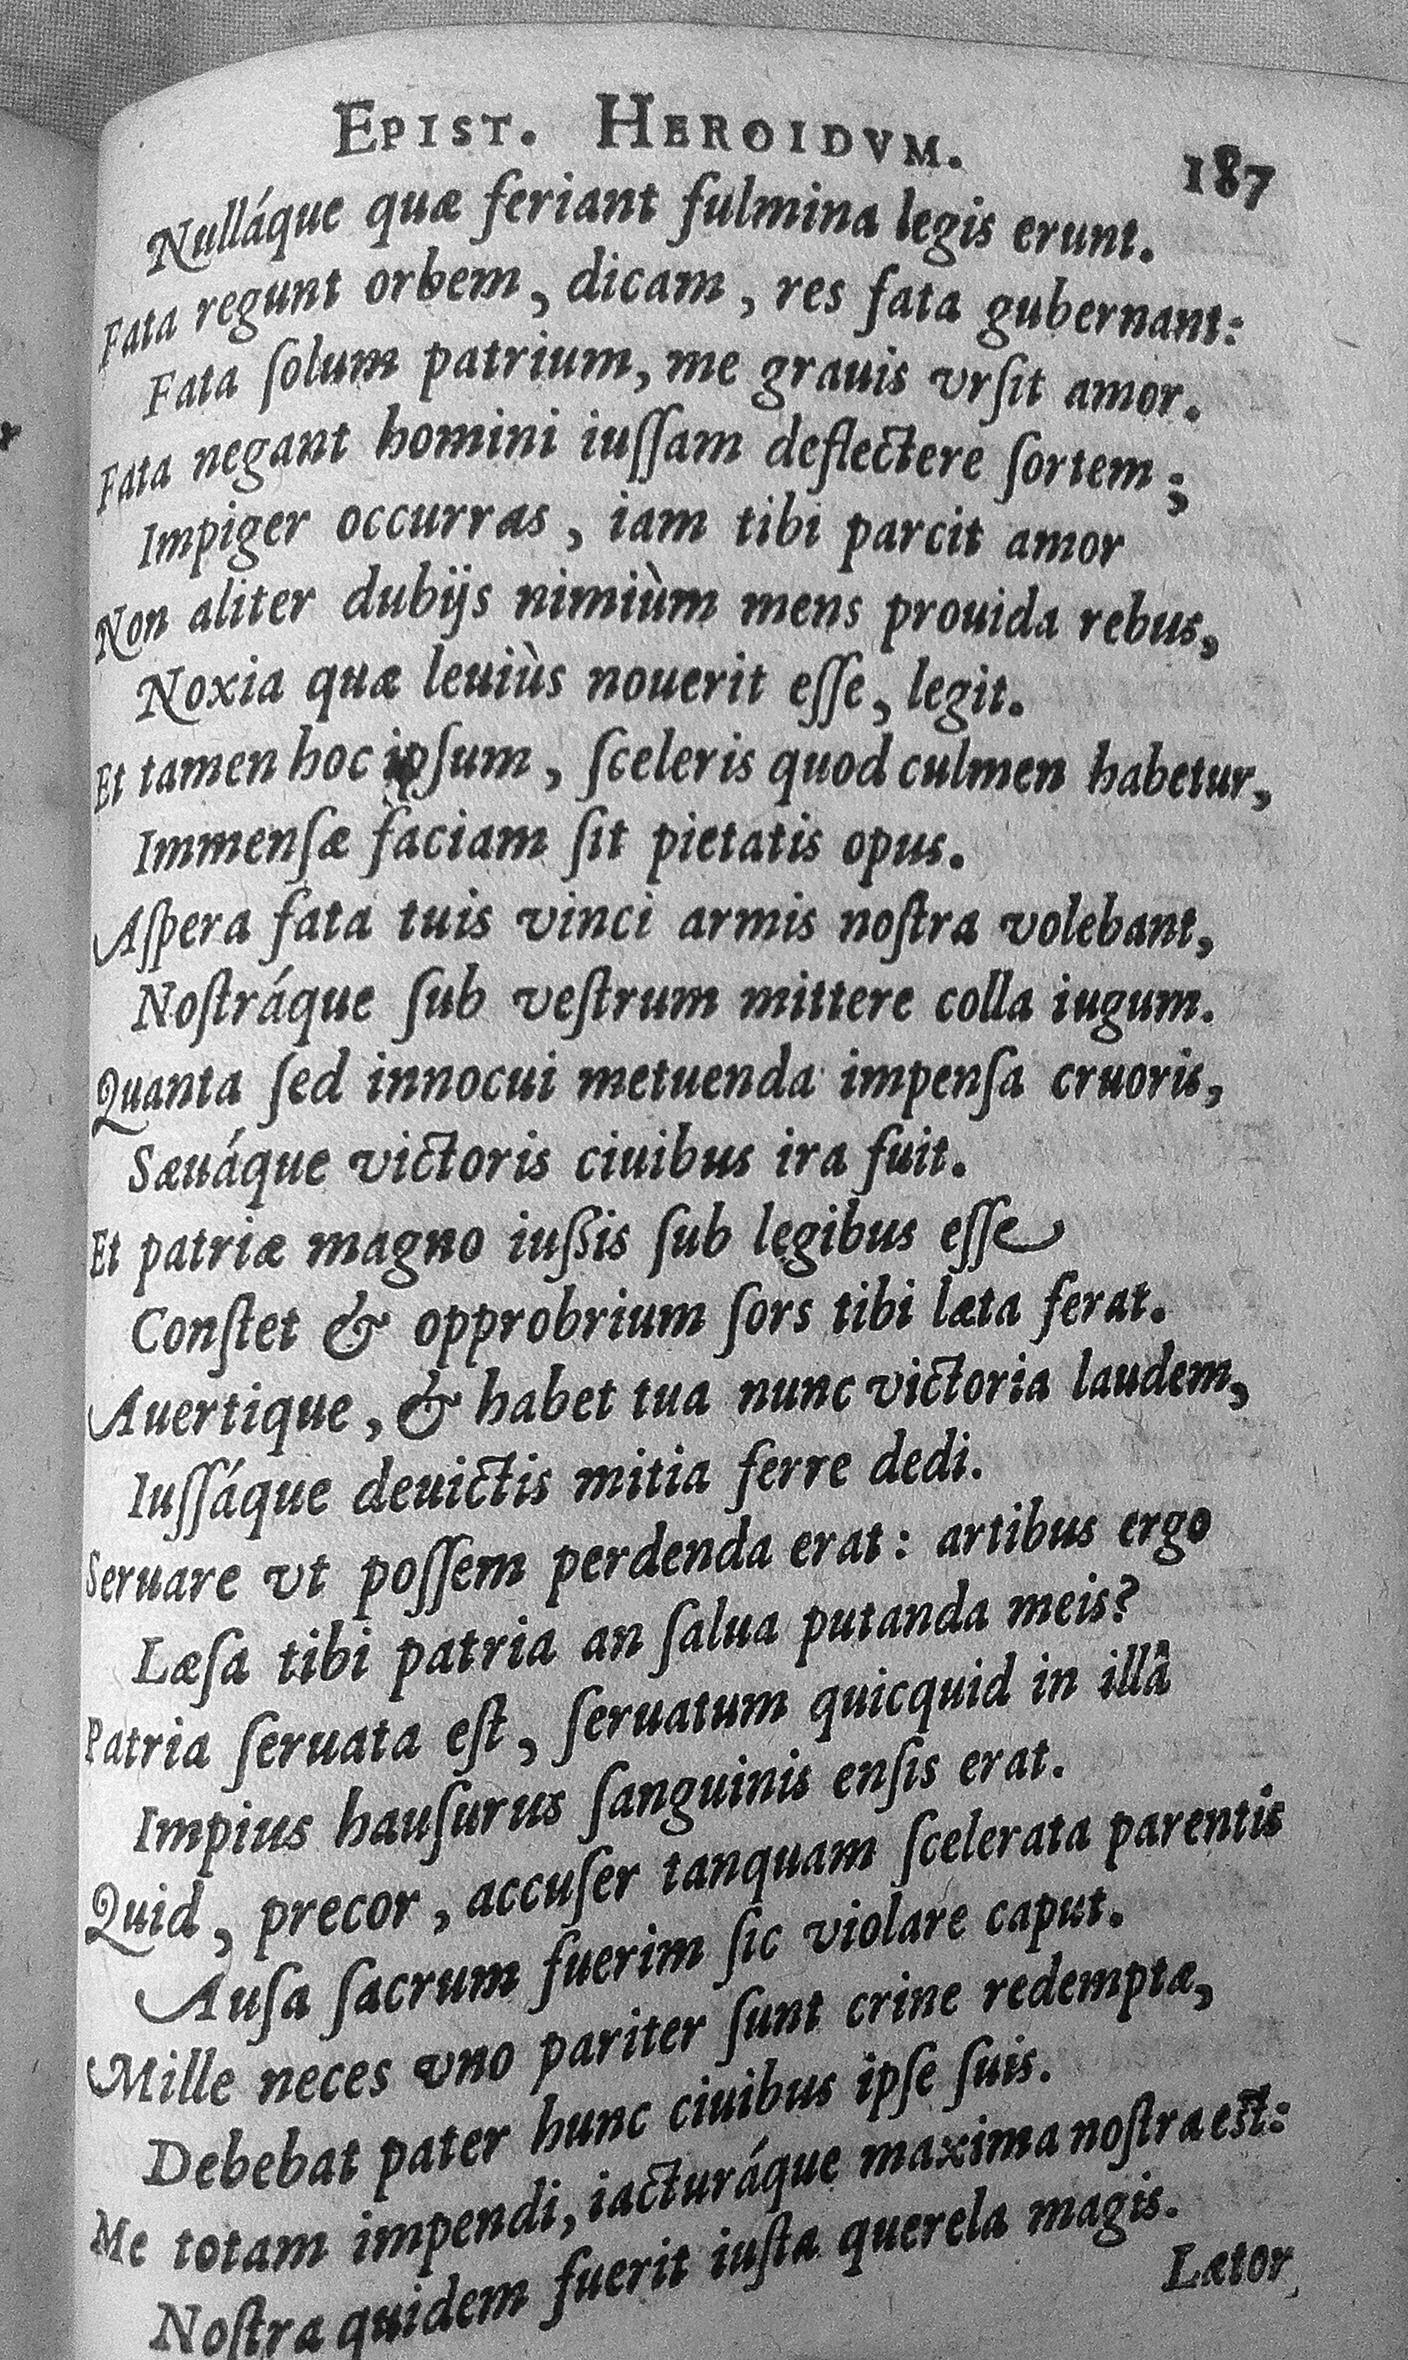 EPIST. HEROIDVM. 187
Nulláque quæ feriant fulmina legis erunt.
Fata regunt orbem, dicam, res fata gubernant:
Fata ſolum patrium, me grauis vrſit amor.
Fata negant homini iuſſam deflectere ſortem;
Impiger occurras, iam tibi parcit amor
Non aliter dubijs nimiùm mens prouida rebus,
Noxia quæ leuiùs nouerit eſſe, legit.
Et tamen hoc ipſum, ſceleris quod culmen habetur,
Immenſæ faciam ſit pietatis opus.
Aſpera fata tuis vinci armis noſtra volebant,
Noſtráque ſub veſtrum mittere colla iugum.
Quanta ſed innocui metuenda impenſa cruoris,
Sæuáque victoris ciuibus ira fuit.
Et patriæ magno iuſsis ſub legibus eſſe
Conſtet & opprobrium ſors tibi læta ferat.
Auertique, & habet tua nunc victoria laudem,
Iuſſáque deuictis mitia ferre dedi.
Seruare vt poſſem perdenda erat: artibus ergo
Læſa tibi patria an ſalua putanda meis?
Patria ſeruata eſt, ſeruatum quicquid in illâ
Impius hauſurus ſanguinis enſis erat.
Quid, precor, accuſer tanquam ſcelerata parentis
Auſa ſacrum fuerim ſic violare caput.
Mille neces vno pariter ſunt crine redemptæ,
Debebat pater hunc ciuibus ipſe ſuis.
Me totam impendi, iacturáque maxima noſtra eſt:
Noſtra quidem fuerit iuſta querela magis.
Lætor